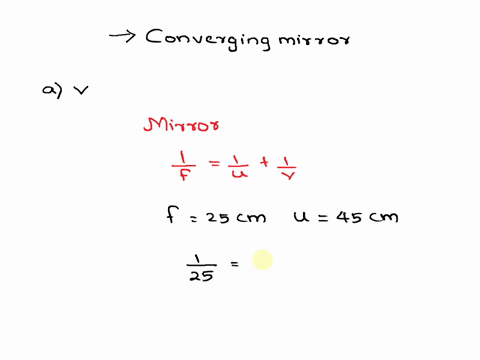 → Converging mirror
a) v
Mirror
1/f = 1/u + 1/v
f = 25 cm u = 45 cm
1/25 =